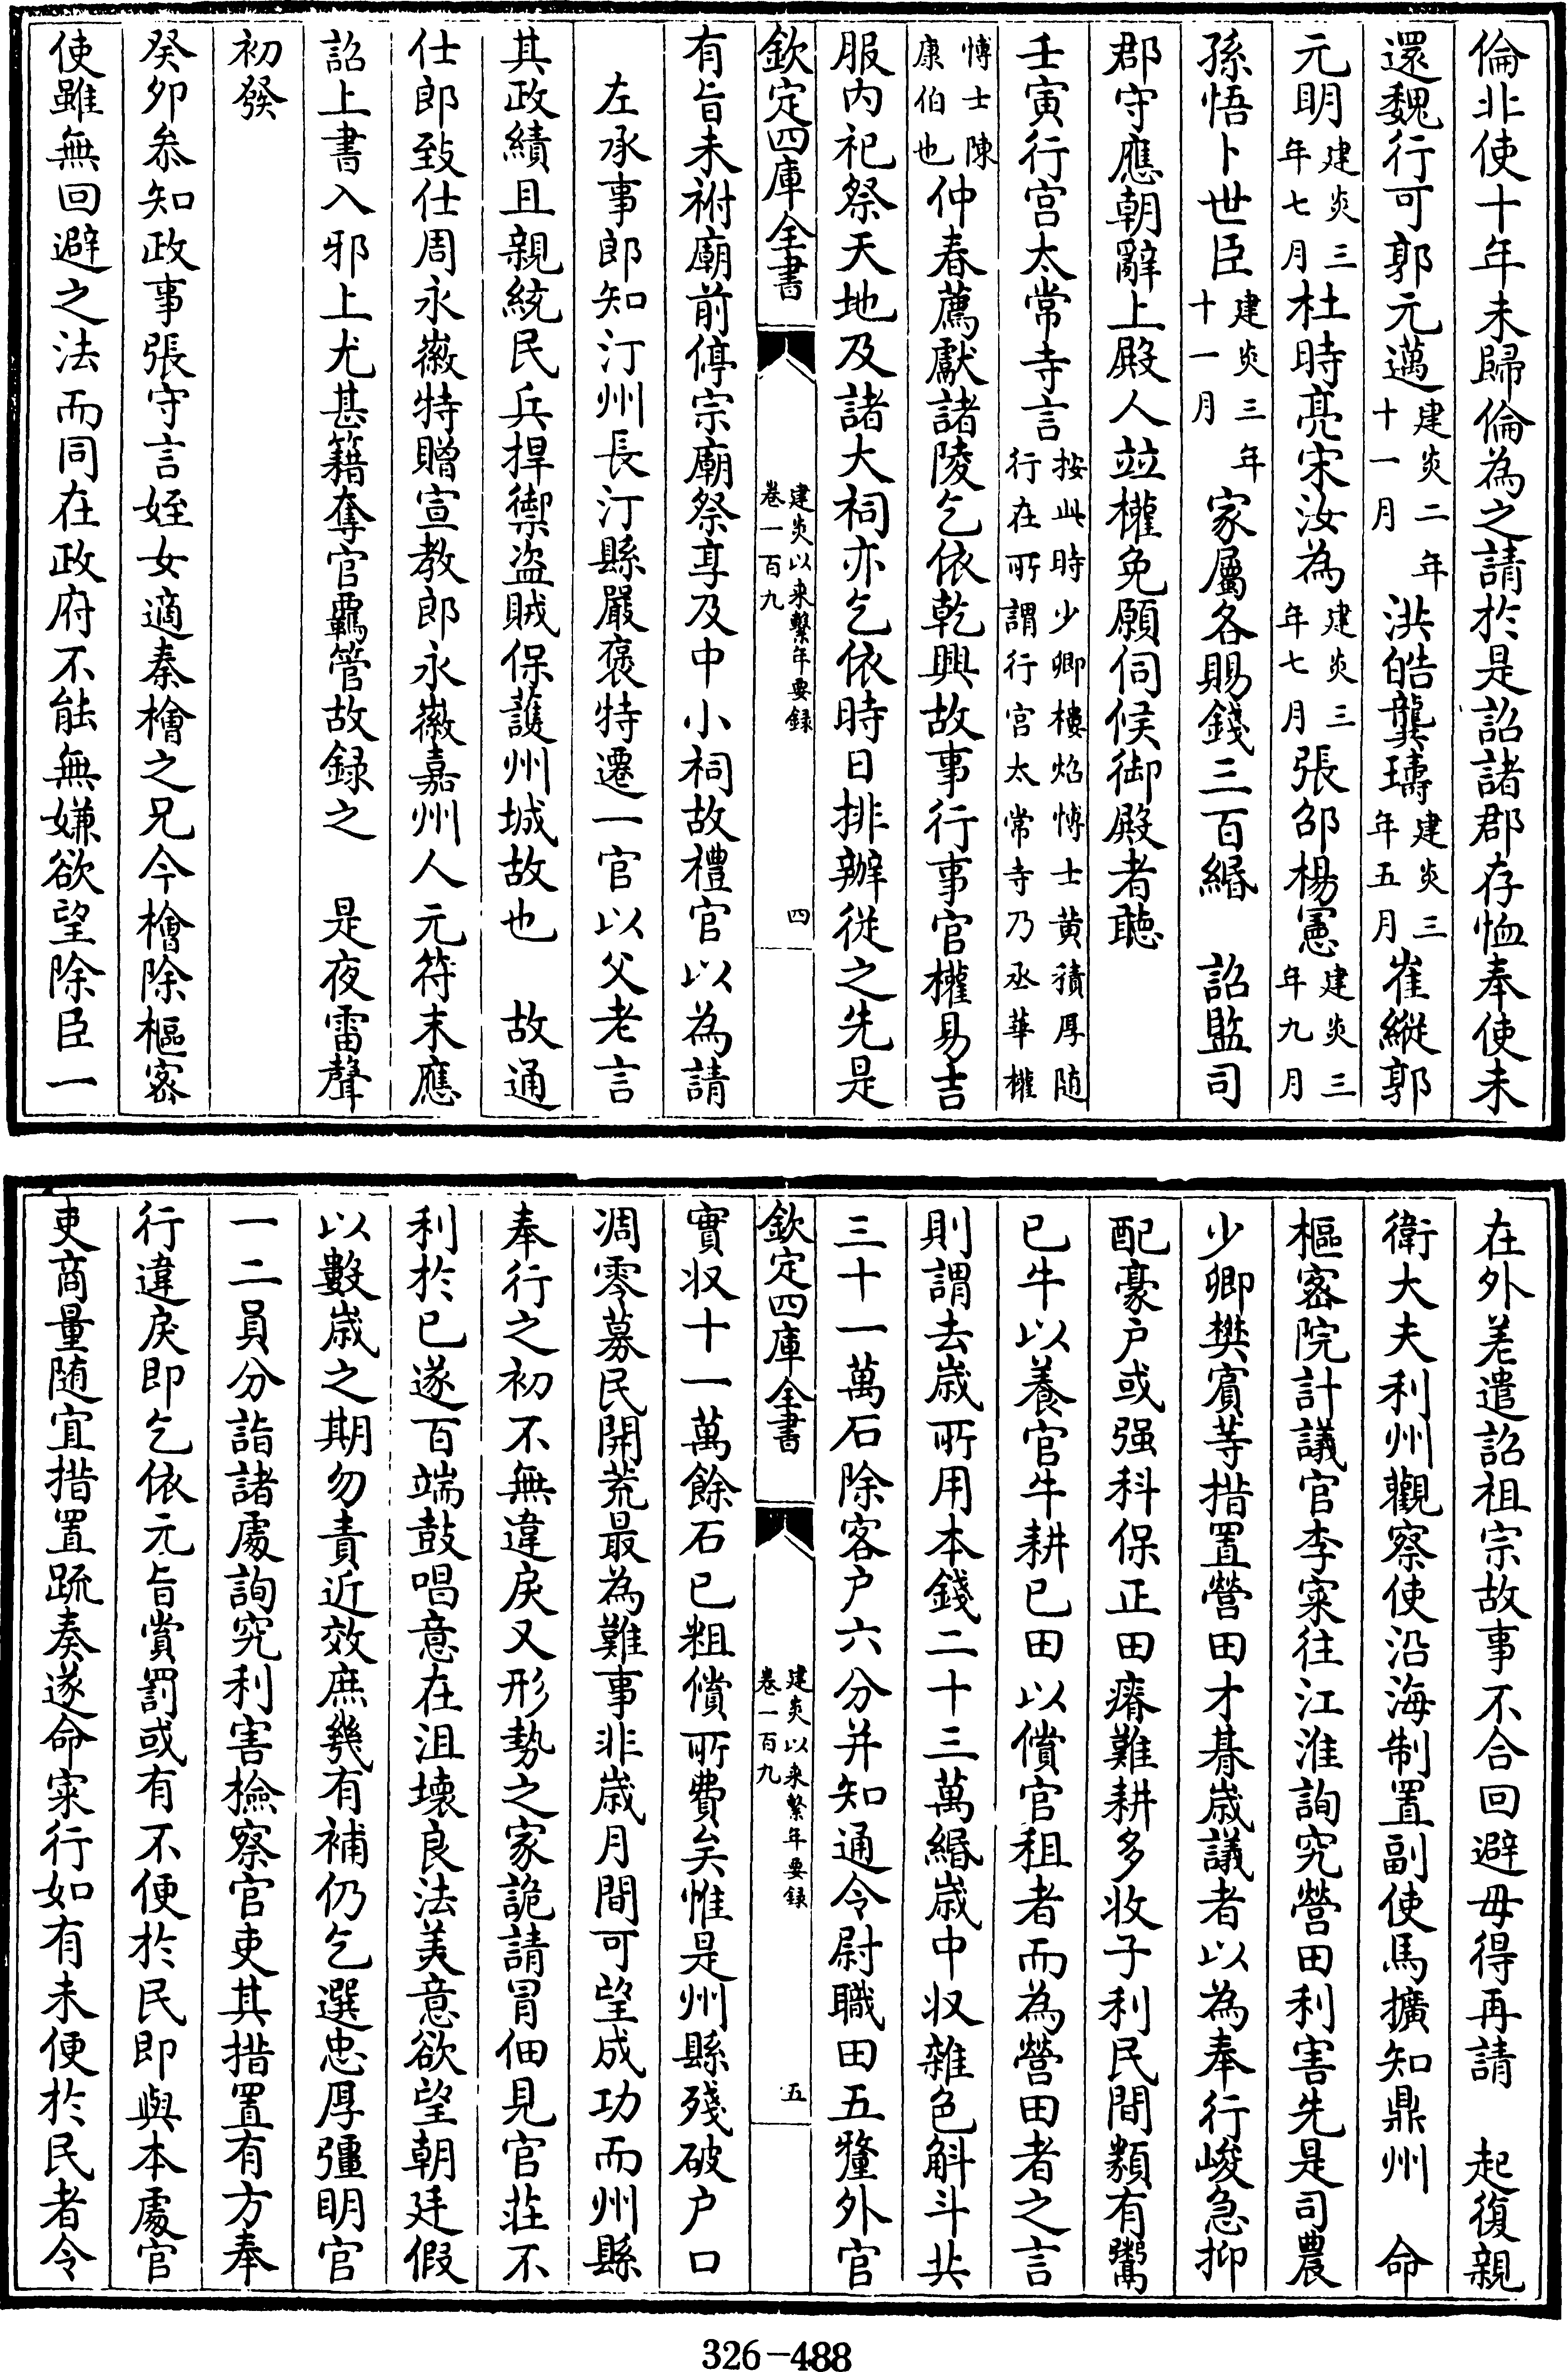 倫非使十年未歸倫為之請於是詔諸郡存恤奉使未
還魏行可郭元邁建炎二年十一月洪皓龔璹建炎三年五月崔縱郭
元明建炎三年七月杜時亮宋汝為建炎三年七月張邵楊憲建炎三年九月
孫悟卜世臣建炎三年十一月家屬各賜錢三百緡　詔監司
郡守應朝辭上殿人竝權免願伺候御殿者聽
壬寅行宫太常寺言按此時少卿樓炤愽士黄積厚随行在所謂行宫太常寺乃丞華權
愽士陳康伯也仲春薦獻諸陵乞依乾興故事行事官權易吉
服内祀祭天地及諸大祠亦乞依時日排辦從之先是
欽定四庫全書　建炎以来繫年要録　卷一百九　四
有旨未祔廟前停宗廟祭享及中小祠故禮官以為請
左承事郎知汀州長汀縣嚴褒特遷一官以父老言
其政績且親統民兵捍禦盗賊保䕶州城故也　故通
仕郎致仕周永徽特贈宣教郎永徽嘉州人元符末應
詔上書入邪上尤甚籍奪官羈管故録之　是夜雷聲
初發
癸夘叅知政事張守言姪女適秦檜之兄今檜除樞宻
使雖無回避之法而同在政府不能無嫌欲望除臣一
在外差遣詔祖宗故事不合回避毋得再請　起復親
衛大夫利州觀察使沿海制置副使馬擴知鼎州　命
樞宻院計議官李寀往江淮詢究營田利害先是司農
少卿樊賓等措置營田才朞歲議者以為奉行峻急抑
配豪户或强科保正田瘠難耕多收子利民間類有鬻
已牛以養官牛耕已田以償官租者而為營田者之言
則謂去歲所用本錢二十三萬緡歲中收雜色斛斗共
三十一萬石除客户六分并知通令尉職田五釐外官
欽定四庫全書　建炎以来繫年要録　卷一百九　五
實収十一萬餘石已粗償所費矣惟是州縣殘破户口
凋零募民開荒最為難事非歲月間可望成功而州縣
奉行之初不無違戾又形勢之家詭請冒佃見官莊不
利於已遂百端鼓唱意在沮壊良法美意欲望朝廷假
以數歲之期勿責近效庶幾有補仍乞選忠厚彊明官
一二員分詣諸處詢究利害檢察官吏其措置有方奉
行違戾即乞依元旨賞罰或有不便於民即與本處官
吏商量随宜措置疏奏遂命寀行如有未便於民者令
326-488